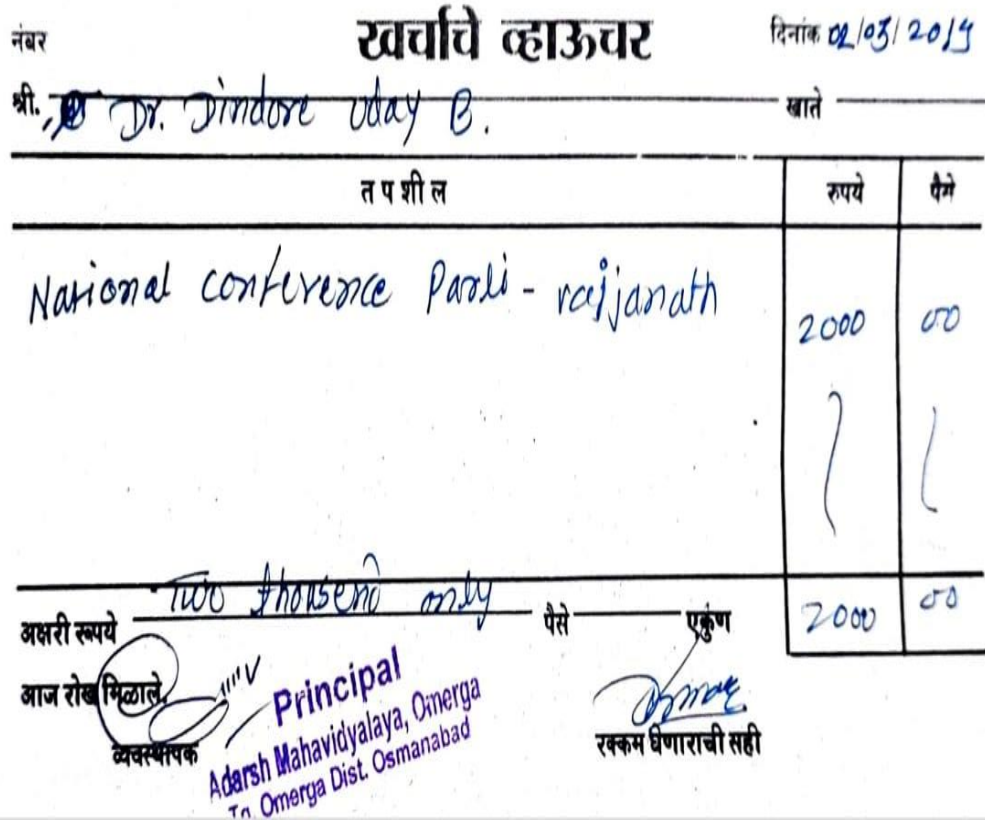 नंबर खर्चाचे व्हाऊचर दिनांक 02/03/2019
श्री. Dr. Dindore Uday B. खाते
तपशील रुपये पैसे
National conference Parli - vaijanath 2000 00
अक्षरी रूपये Two thousend only पैसे एकुंण 2000 00
आज रोख मिळाले.
व्यवस्थापक
Principal
Adarsh Mahavidyalaya, Omerga
Tq. Omerga Dist. Osmanabad
रक्कम घेणाराची सही